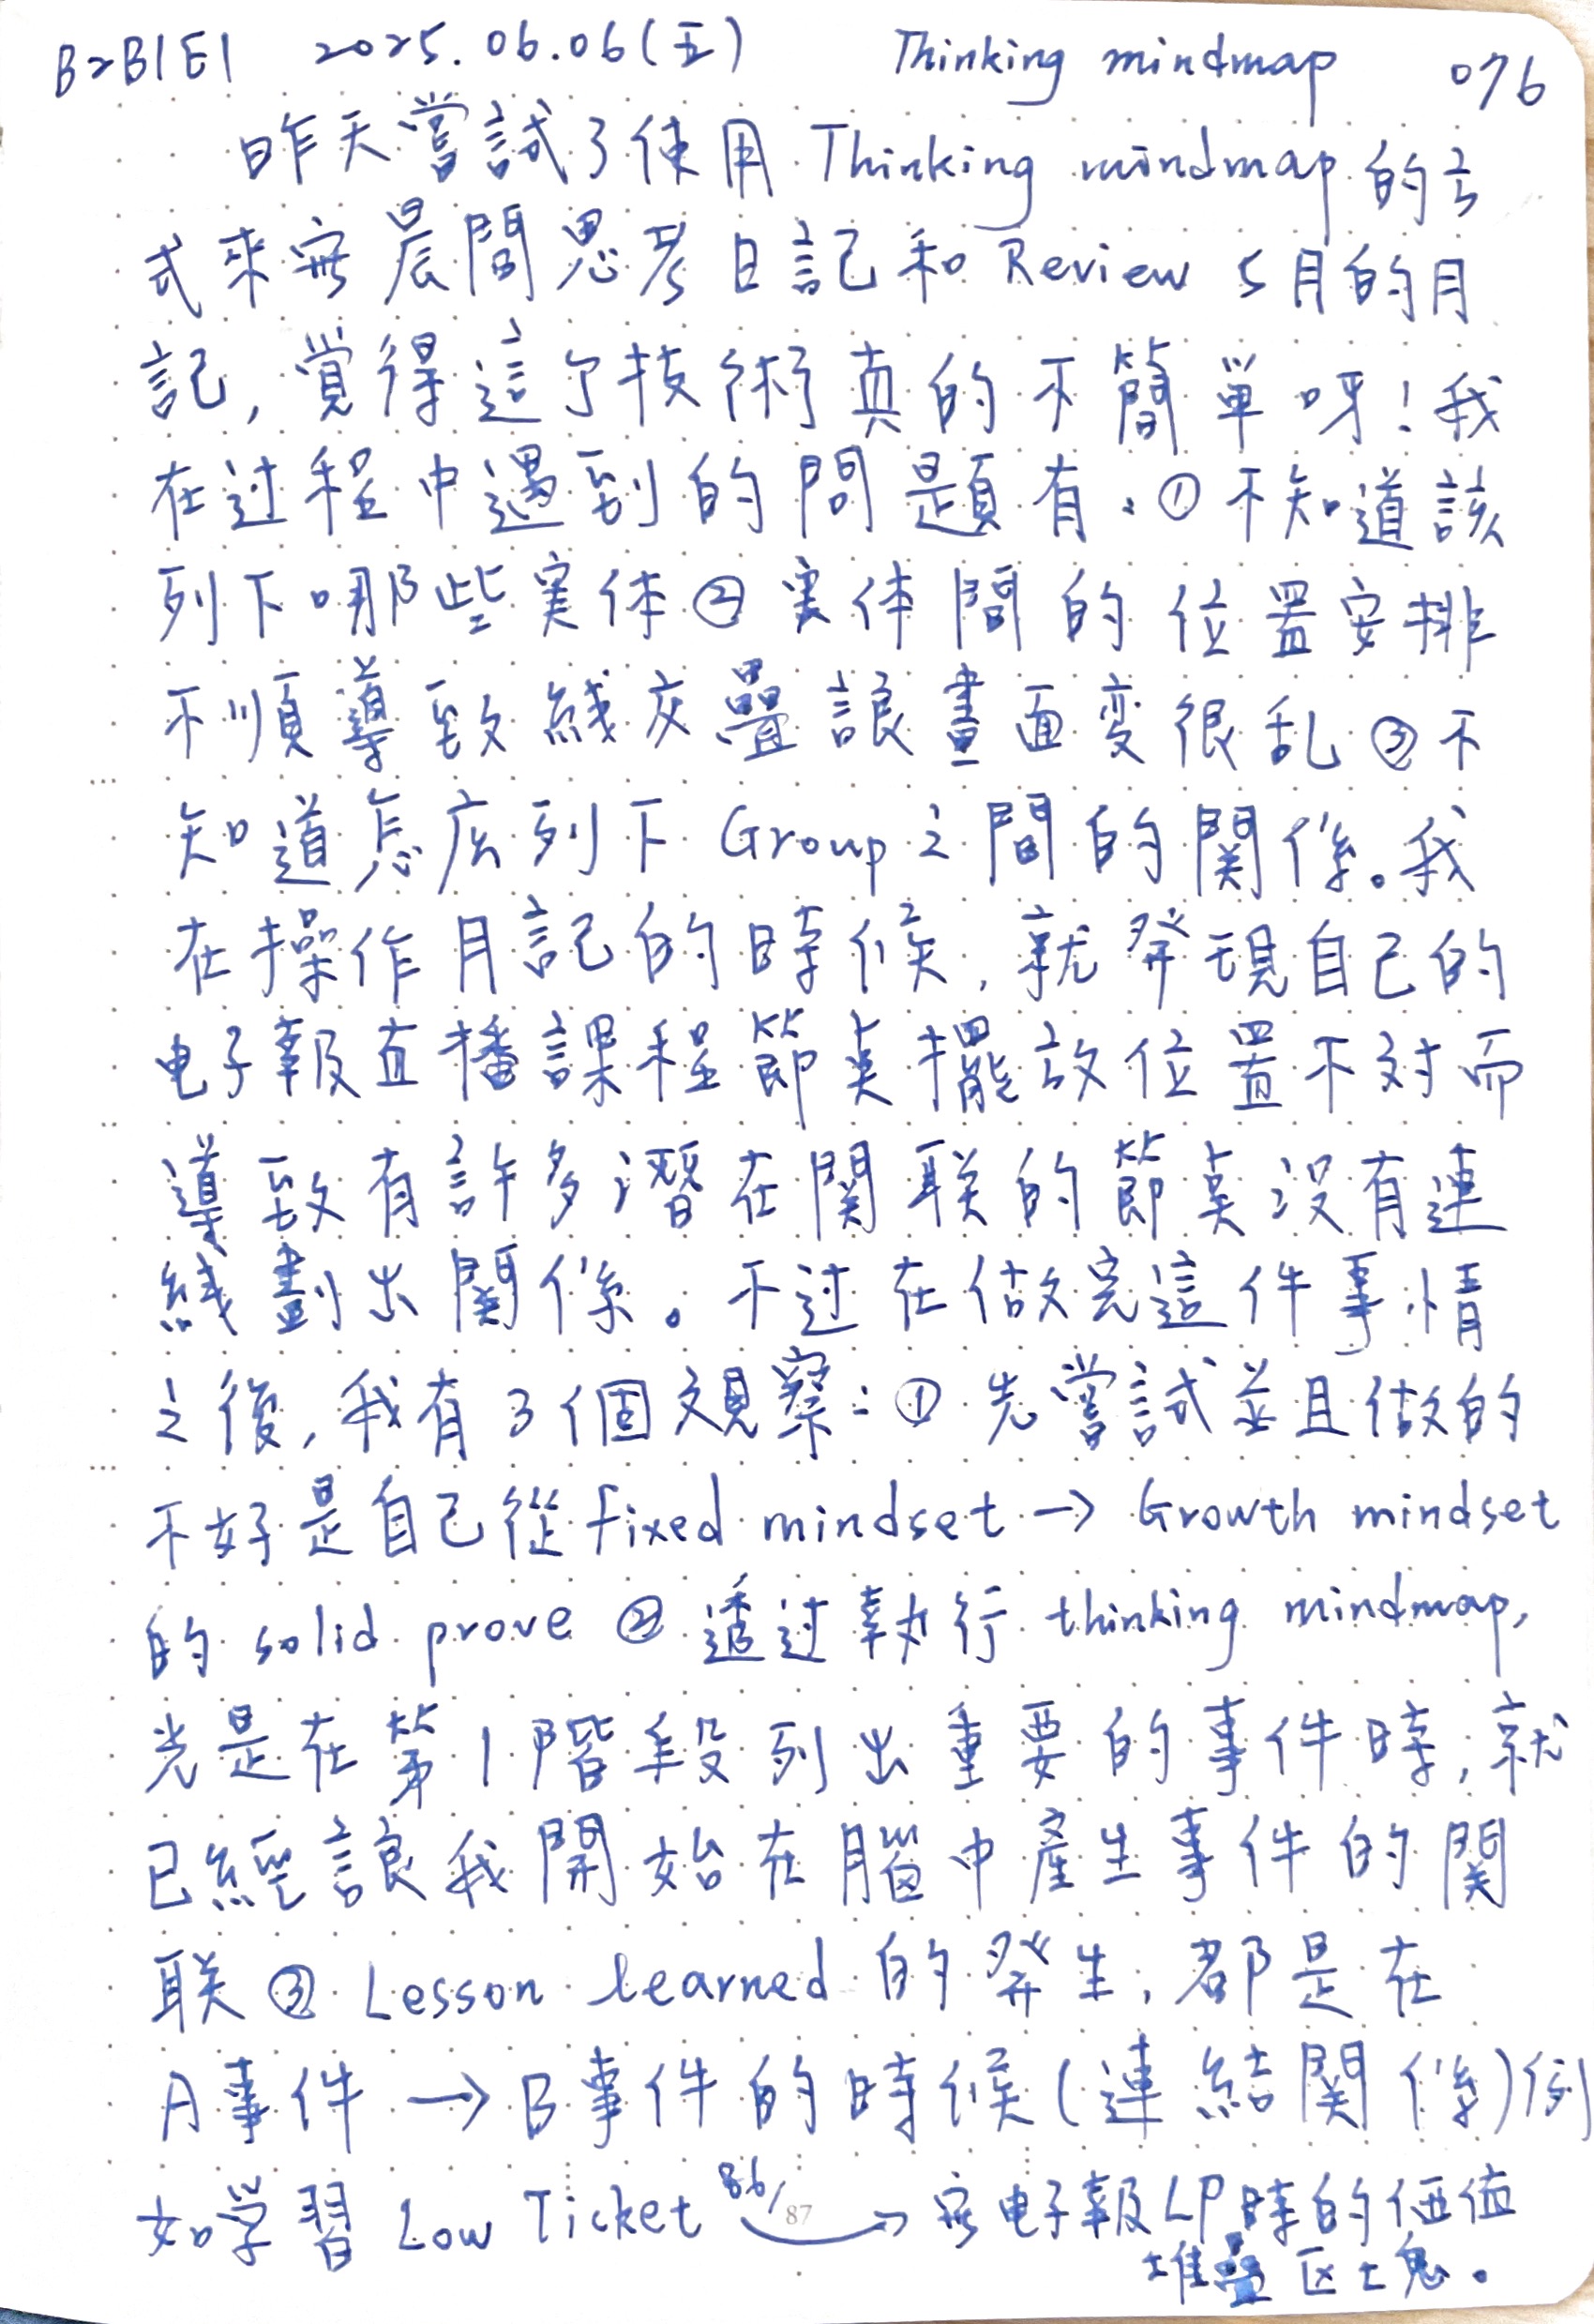 B2B1E1 2025.06.06(五) Thinking mindmap 076
昨天嘗試了使用 Thinking mindmap 的方
式來寫晨間思考日記和 Review 5月的月
記, 覺得這个技術真的不簡單呀! 我
在过程中遇到的問題有: ① 不知道該
列下哪些実体 ② 実体間的位置安排
不順導致綫交疊讓畫面変很乱 ③ 不
知道怎庅列下 Group 之間的関係。我
在操作月記的時候, 就発現自己的
电子報直播課程節奌擺放位置不对而
導致有許多潛在関联的節奌没有連
綫劃出関係。不过在做完這件事情
之後, 我有3個观察: ① 先嘗試並且做的
不好是自己從 fixed mindset → Growth mindset
的 solid prove ② 透过執行 thinking mindmap,
光是在第1階段列出重要的事件時, 就
已經讓我開始在腦中産生事件的関
联 ③ Lesson learned 的発生, 都是在
A事件 → B事件的時候 (連結関係) 例
如学習 Low Ticket → 寫电子報LP時的価值
堆疊区塊。
86/87